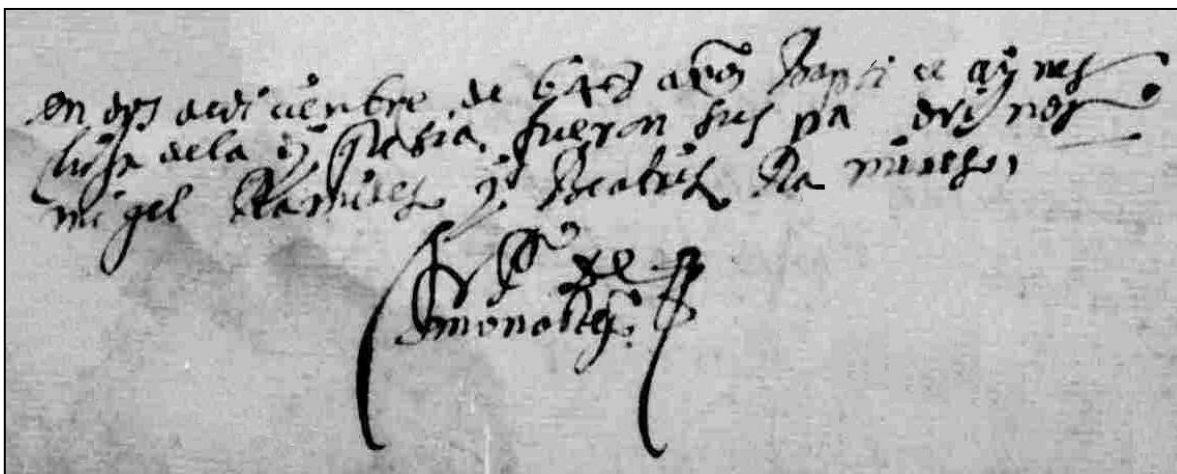 en dos de diciembre de 648 años Baptice a ynes
hija de la yglesia, fueron sus padrinos
migel Ramires y Beatris Ramires,